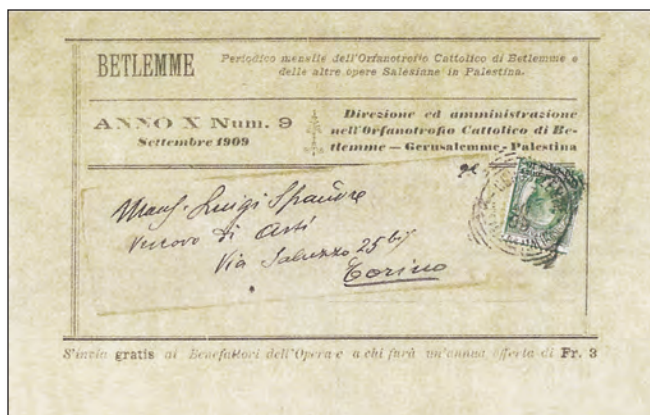 BETLEMME
Periodico mensile dell'Orfanotrofio Cattolico di Betlemme e
delle altre opere Salesiane in Palestina.
ANNO X Num. 9
Settembre 1909
Direzione ed amministrazione
nell'Orfanotrofio Cattolico di Be-
tlemme — Gerusalemme - Palestina
Luigi
Vescovo di Asti
Via Saluzzo 25 bis
Torino
S'invia gratis ai Benefattori dell'Opera e a chi farà un'annua offerta di Fr. 3